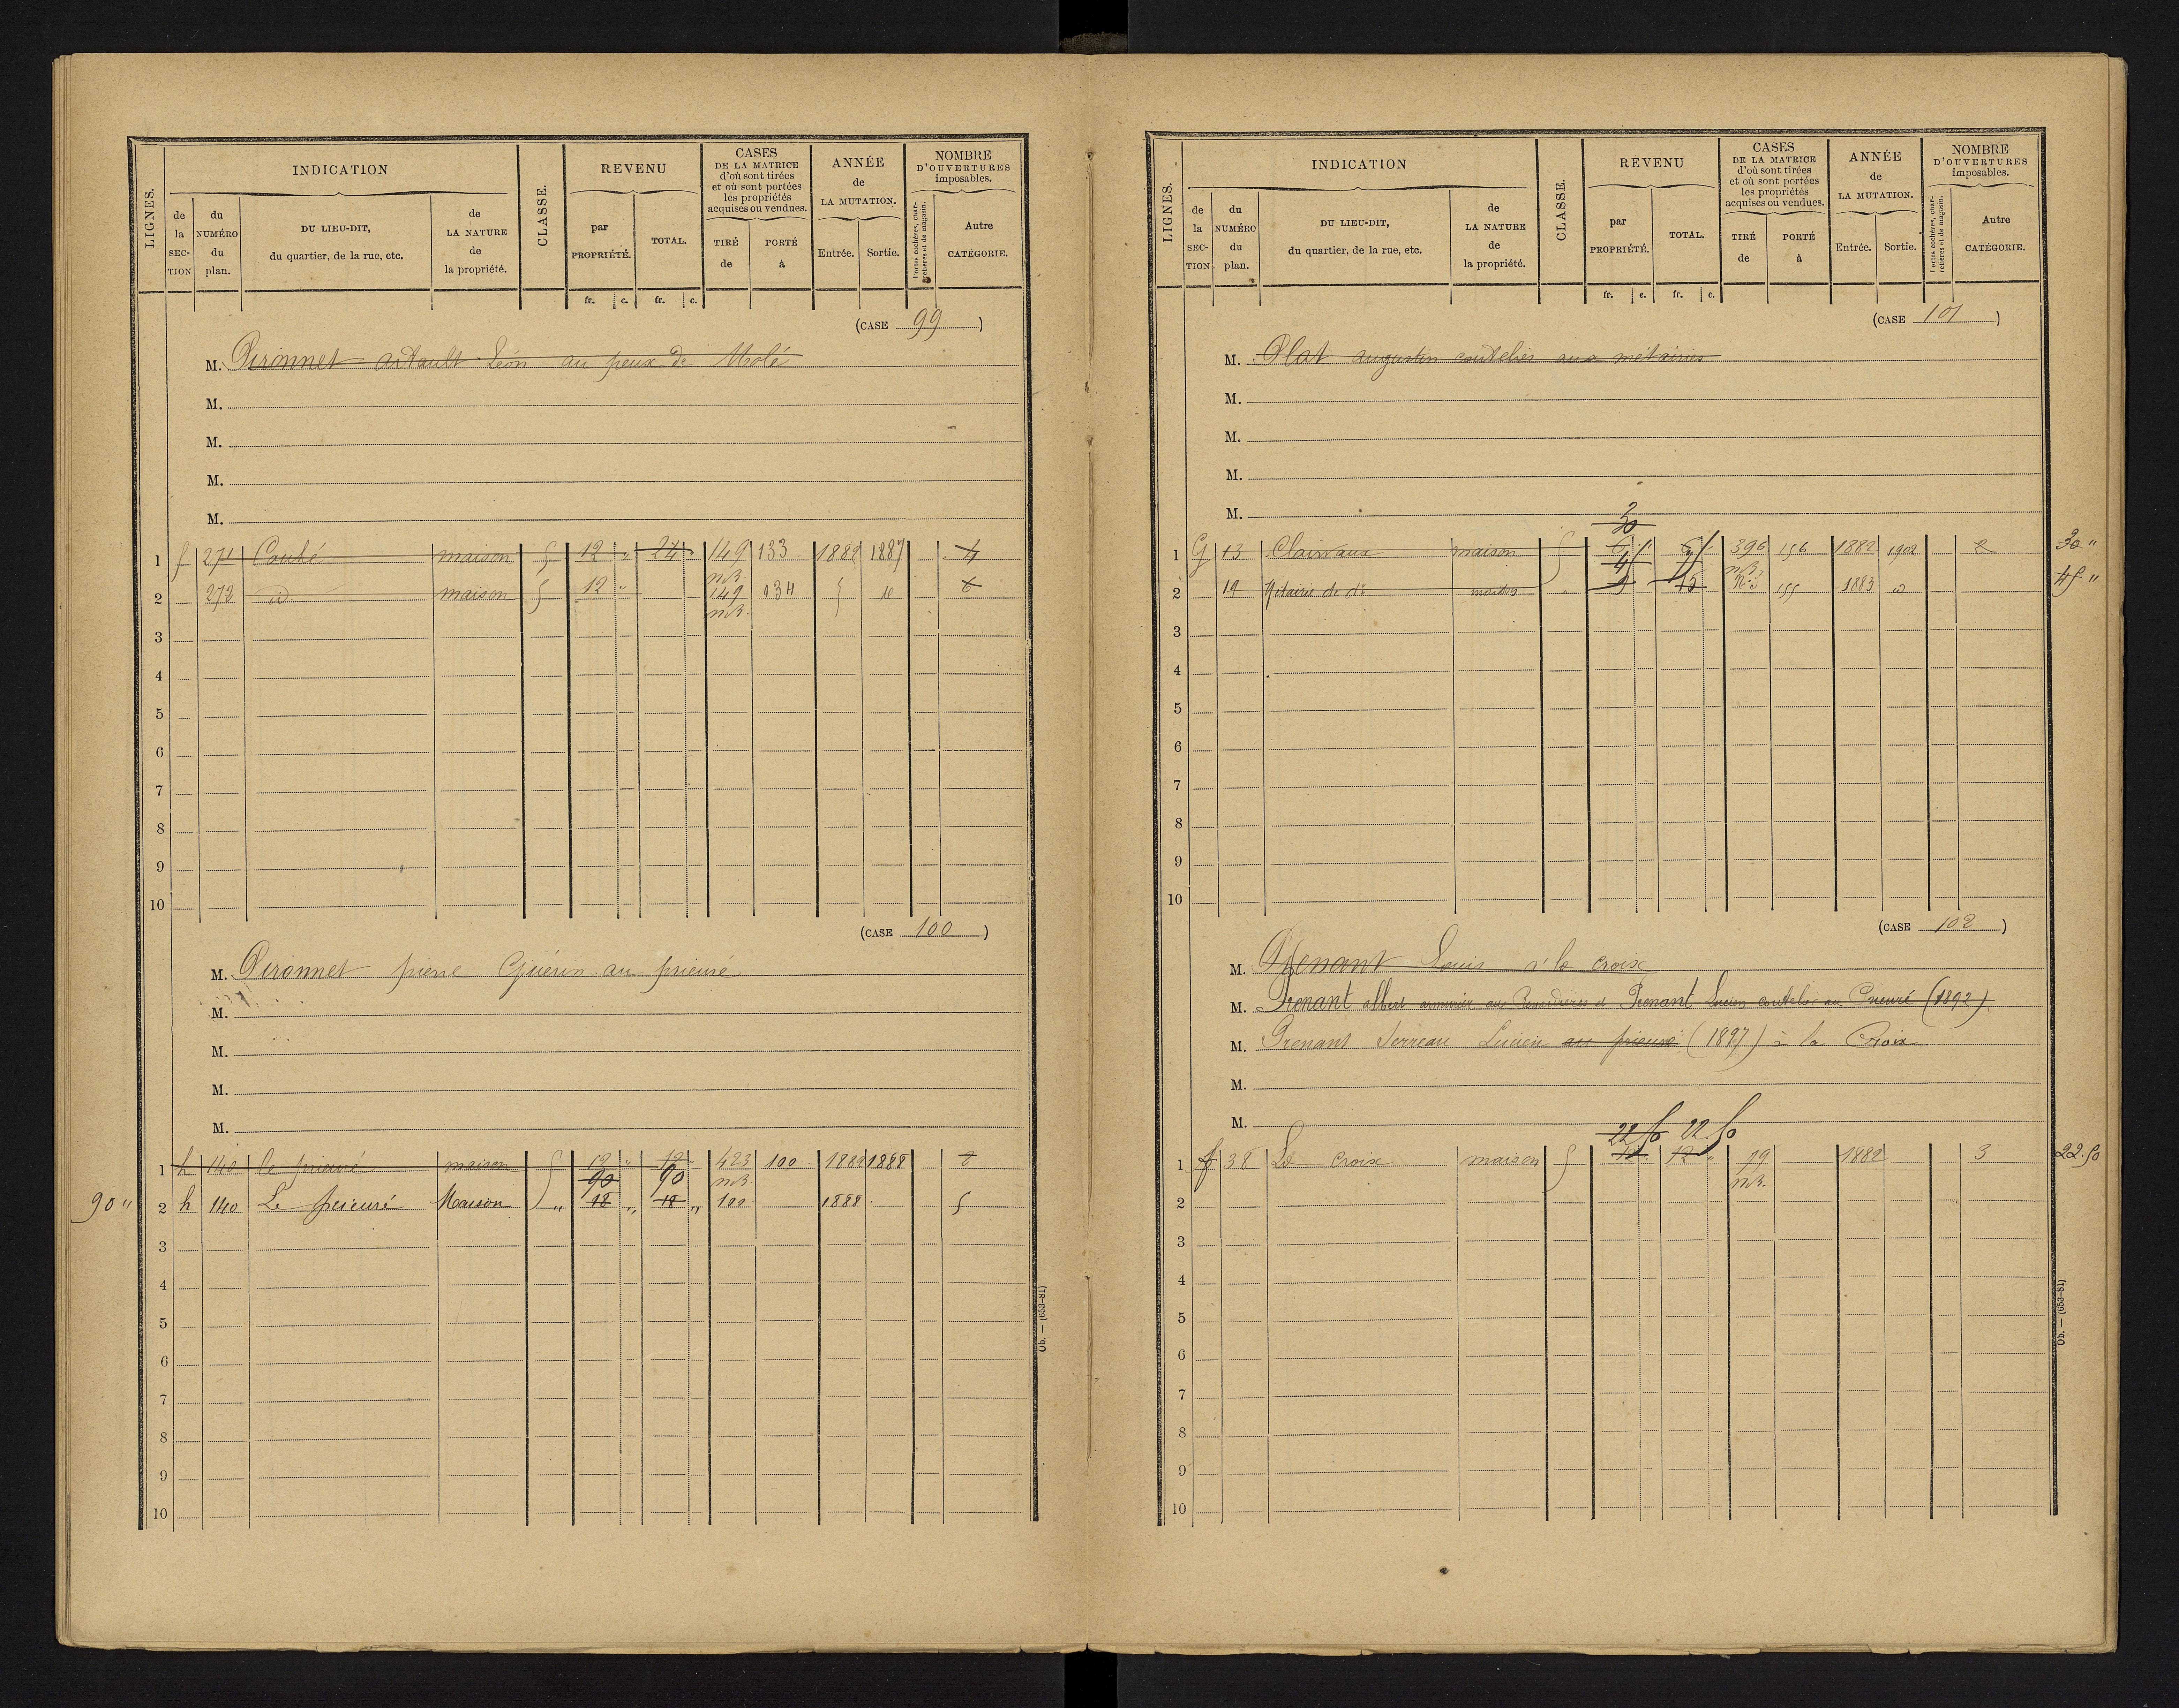 LIGNES.
INDICATION
de la SECTION
du NUMÉRO du plan.
DU LIEU-DIT, du quartier, de la rue, etc.
de LA NATURE de la propriété.
CLASSE.
REVENU
par PROPRIÉTÉ.
TOTAL.
CASES DE LA MATRICE d'où sont tirées et où sont portées les propriétés acquises ou vendues.
TIRÉ de
PORTÉ à
ANNÉE de LA MUTATION.
Entrée.
Sortie.
NOMBRE D'OUVERTURES imposables.
Portes cochères, charretières et de magasin.
Autre CATÉGORIE.
fr. c. fr. c.
(CASE 99)
M. Pironnet artault Léon au peux de Molé
M.
M.
M.
M.
1 f 271 Couhé maison 12 " 24 " 149 133 1882 1887 4
n.B.
2 272 id maison 12 " 149 134 id 6
n.B.
3
4
5
6
7
8
9
10
(CASE 100)
M. Pironnet pierre Guérin au prieuré
M.
M.
M.
M.
1 h 140 le prieuré maison 12 " 12 " 423 100 1882 1888
90 90 n.B.
90 " 2 h 140 Le prieuré Maison " 18 " 18 " 100 1888 5
3
4
5
6
7
8
9
10
Ob. — (653-81)
LIGNES.
INDICATION
de la SECTION
du NUMÉRO du plan.
DU LIEU-DIT, du quartier, de la rue, etc.
de LA NATURE de la propriété.
CLASSE.
REVENU
par PROPRIÉTÉ.
TOTAL.
CASES DE LA MATRICE d'où sont tirées et où sont portées les propriétés acquises ou vendues.
TIRÉ de
PORTÉ à
ANNÉE de LA MUTATION.
Entrée.
Sortie.
NOMBRE D'OUVERTURES imposables.
Portes cochères, charretières et de magasin.
Autre CATÉGORIE.
fr. c. fr. c.
(CASE 101)
M. Plat augustin coutelier aux métairies
M.
M.
M.
M.
30
1 G 13 Clairvaux maison 396 156 1882 1902 2 30 "
n.B.
2 19 Métairie de do maison 9 15 155 1883 id 45 "
3
4
5
6
7
8
9
10
(CASE 102)
M. Prenant Louis à la croix
M. Prenant albert armurier aux Renardières et Prenant Lucien coutelier au Prieuré (1892)
M. Prenant Terreau Lucien au prieuré (1897) à la Croix
M.
M.
22.50 22.50
1 f 38 La croix maison 12 12 " 19 1882 3 22.50
n.B.
2
3
4
5
6
7
8
9
10
Ob. — (653-81)